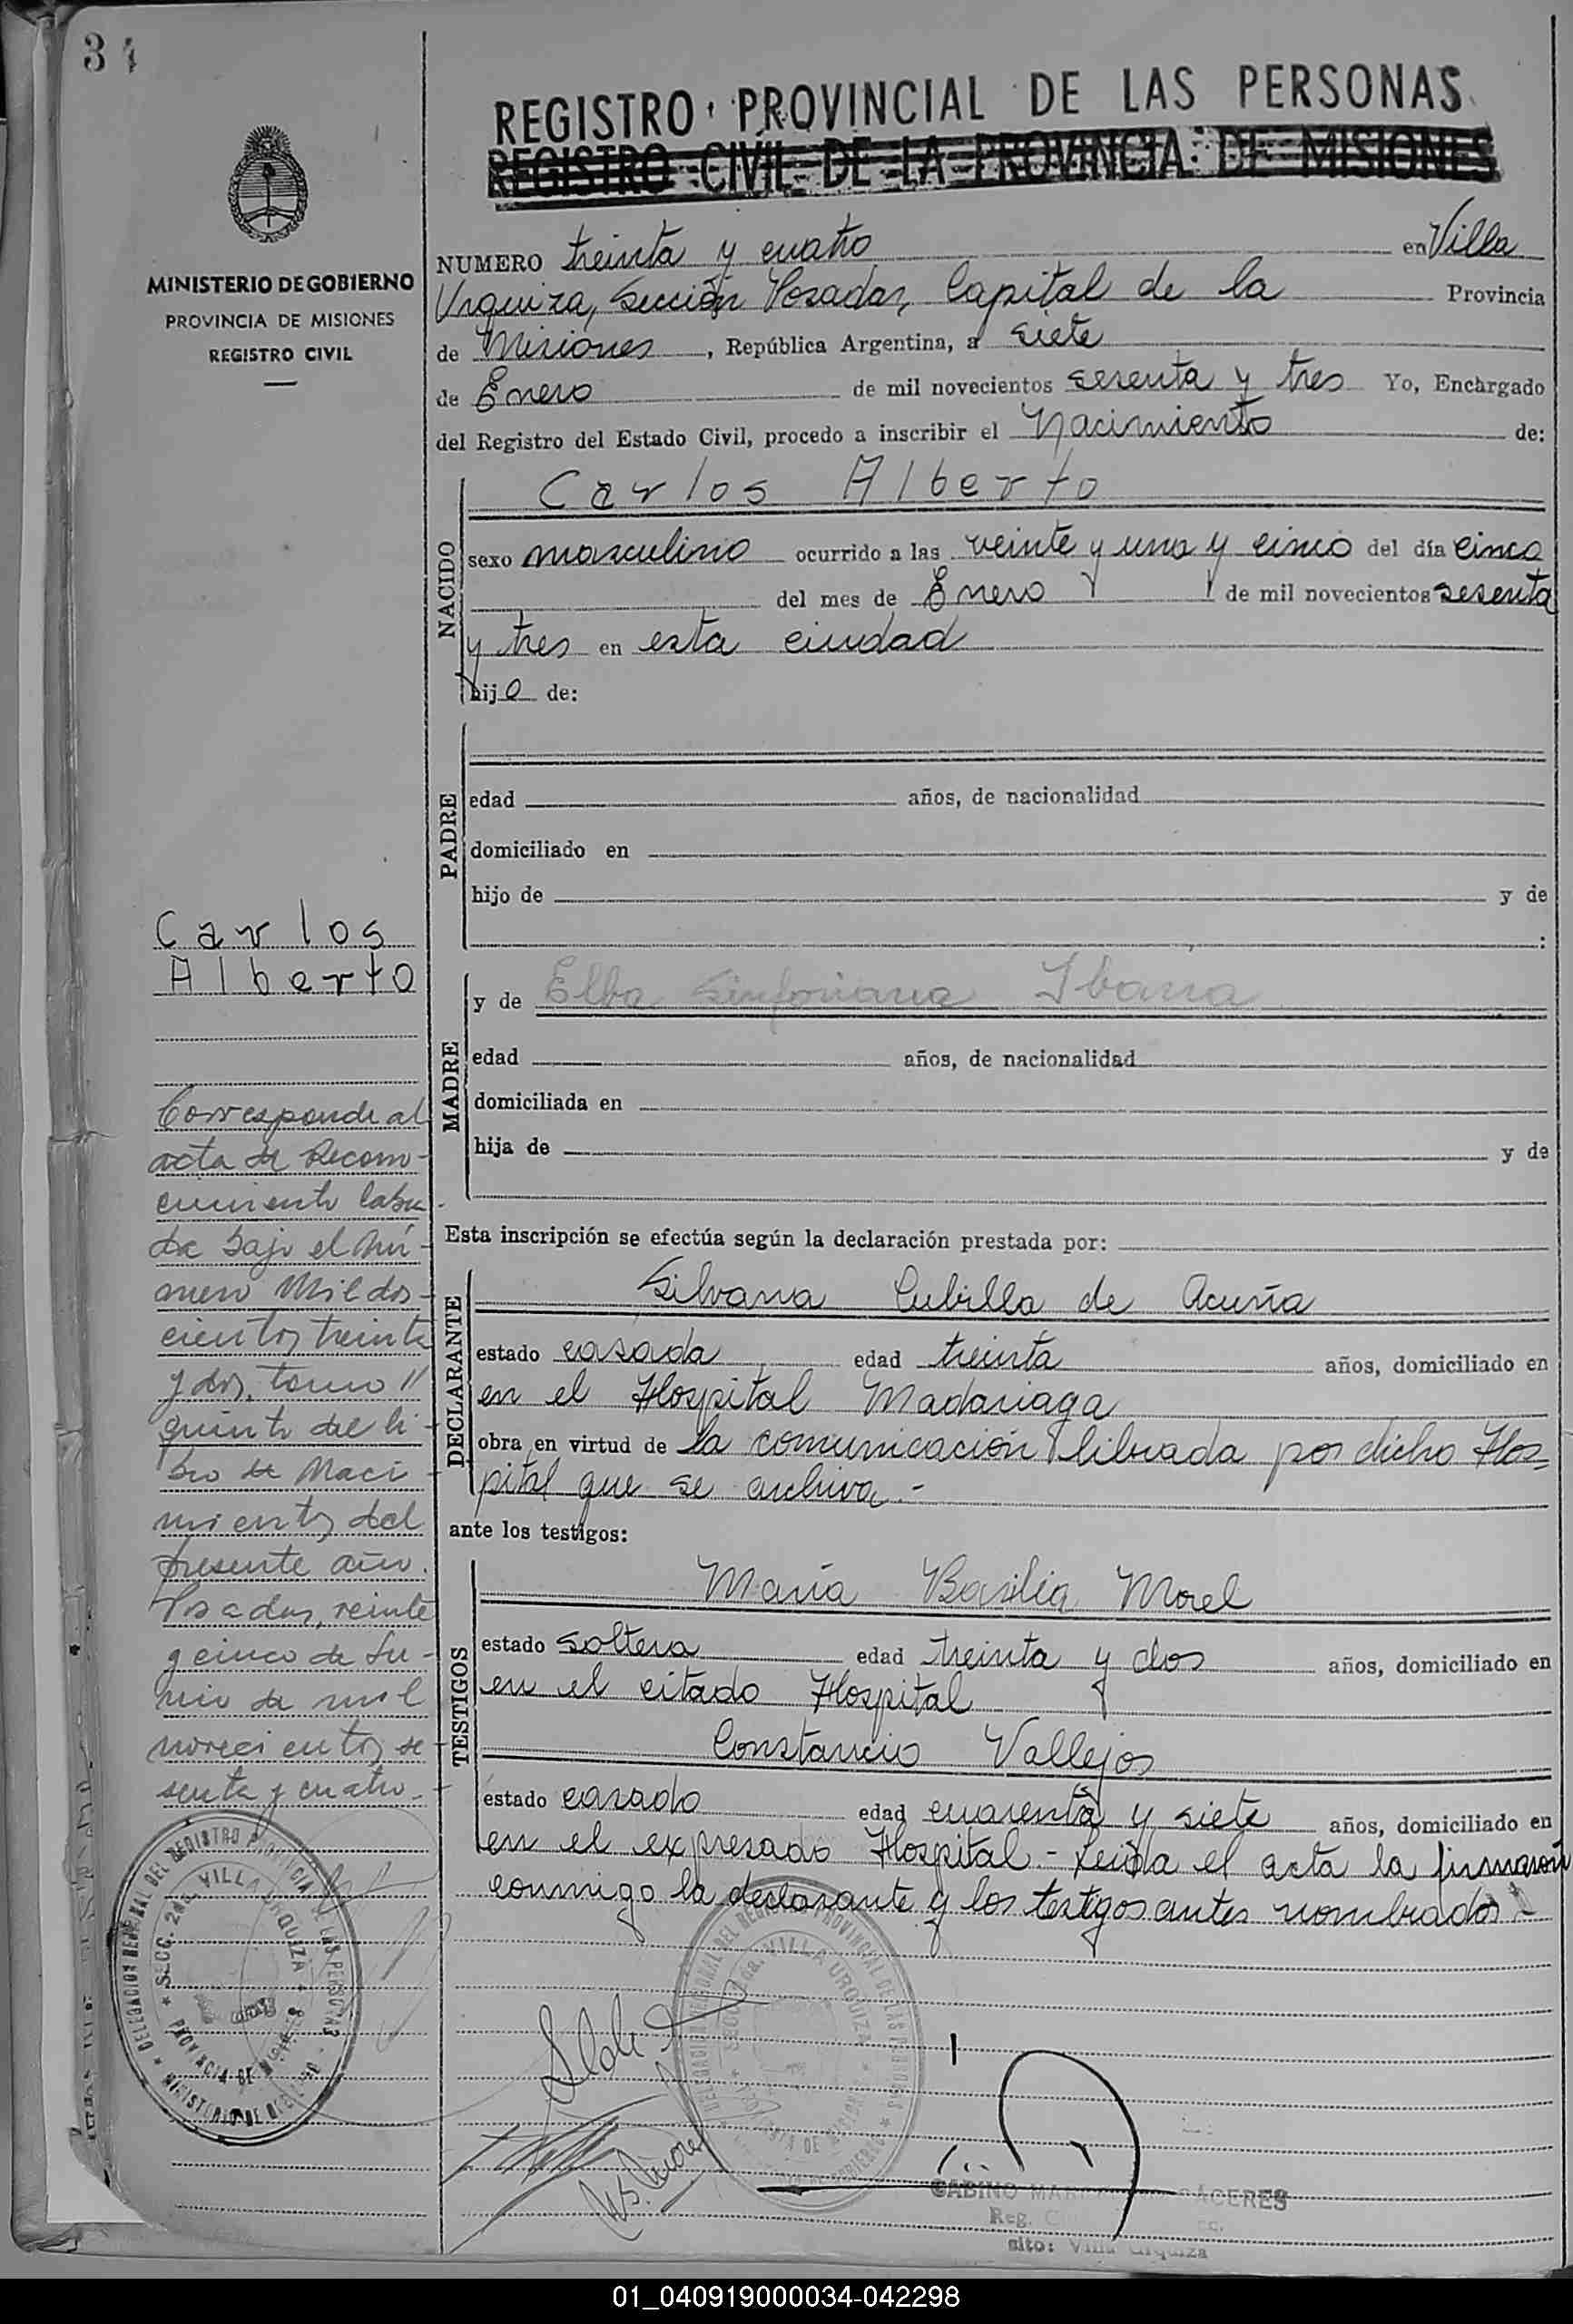 34
MINISTERIO DE GOBIERNO
PROVINCIA DE MISIONES
REGISTRO CIVIL
REGISTRO PROVINCIAL DE LAS PERSONAS
REGISTRO CIVIL DE LA PROVINCIA DE MISIONES
NUMERO treinta y cuatro en Villa
Urquiza, Sección Posadas, Capital de la Provincia
de Misiones, República Argentina, a siete
de Enero de mil novecientos sesenta y tres Yo, Encargado
del Registro del Estado Civil, procedo a inscribir el Nacimiento de:
NACIDO
Carlos Alberto
sexo masculino ocurrido a las veinte y una y cinco del día cinco
del mes de Enero de mil novecientos sesenta
y tres en esta ciudad
hijo de:
PADRE
edad años, de nacionalidad
domiciliado en
hijo de y de
:
MADRE
y de Elba Sinforiana Ibarra
edad años, de nacionalidad
domiciliada en
hija de y de
Esta inscripción se efectúa según la declaración prestada por:
DECLARANTE
Silvana Cubilla de Acuña
estado casada edad treinta años, domiciliado en
en el Hospital Madariaga
obra en virtud de la comunicación librada por dicho Hos=
pital que se archiva.-
ante los testigos:
TESTIGOS
María Basilia Morel
estado soltera edad treinta y dos años, domiciliado en
en el citado Hospital
Constancio Vallejos
estado casado edad cuarenta y siete años, domiciliado en
en el expresado Hospital.- Leída el acta la firmaron
conmigo la declarante y los testigos antes nombrados.-
Carlos
Alberto
Corresponde al
acta de Recono-
cimiento labra-
da bajo el nú-
mero Mil dos-
cientos treinta
y dos, tomo
quinto del li-
bro de Naci-
mientos del
presente año.
Posadas, veinte
y cinco de Ju-
nio de mil
novecientos se-
senta y cuatro.-
DELEGACION DEL REGISTRO PROVINCIAL DE LAS PERSONAS
SECC. 2da. VILLA URQUIZA
PROVINCIA DE MISIONES
MINISTERIO DE GOBIERNO
VILLA URQUIZA
GABINO CACERES
Reg.
sito: Villa Urquiza
01_040919000034-042298